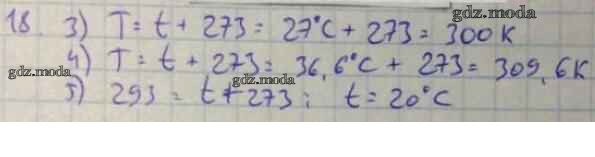 gdz.moda
18. 3) T = t + 273 = 27°C + 273 = 300 K
4) T = t + 273 = 36,6°C + 273 = 309,6 K
gdz.moda
gdz.moda
gdz.moda
5) 293 = t + 273; t = 20°C